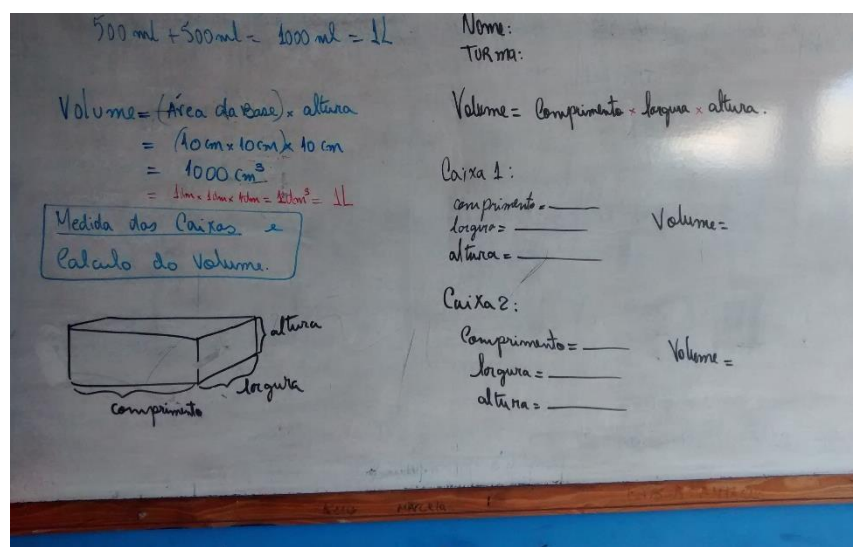 500 ml + 500 ml = 1000 ml = 1L
Volume = (Área da Base) × altura
= (10 cm × 10 cm) × 10 cm
= 1000 cm³
= 1dm × 1dm × 1dm = 1dm³ = 1L
Medida das Caixas e
Calculo do Volume.
altura
largura
comprimento
Nome:
TURma:
Volume = Comprimento × largura × altura.
Caixa 1:
comprimento = ____
largura = ____
altura = ____
Volume =
Caixa 2:
Comprimento = ____
largura = ____
altura = ____
Volume =
MARCELA